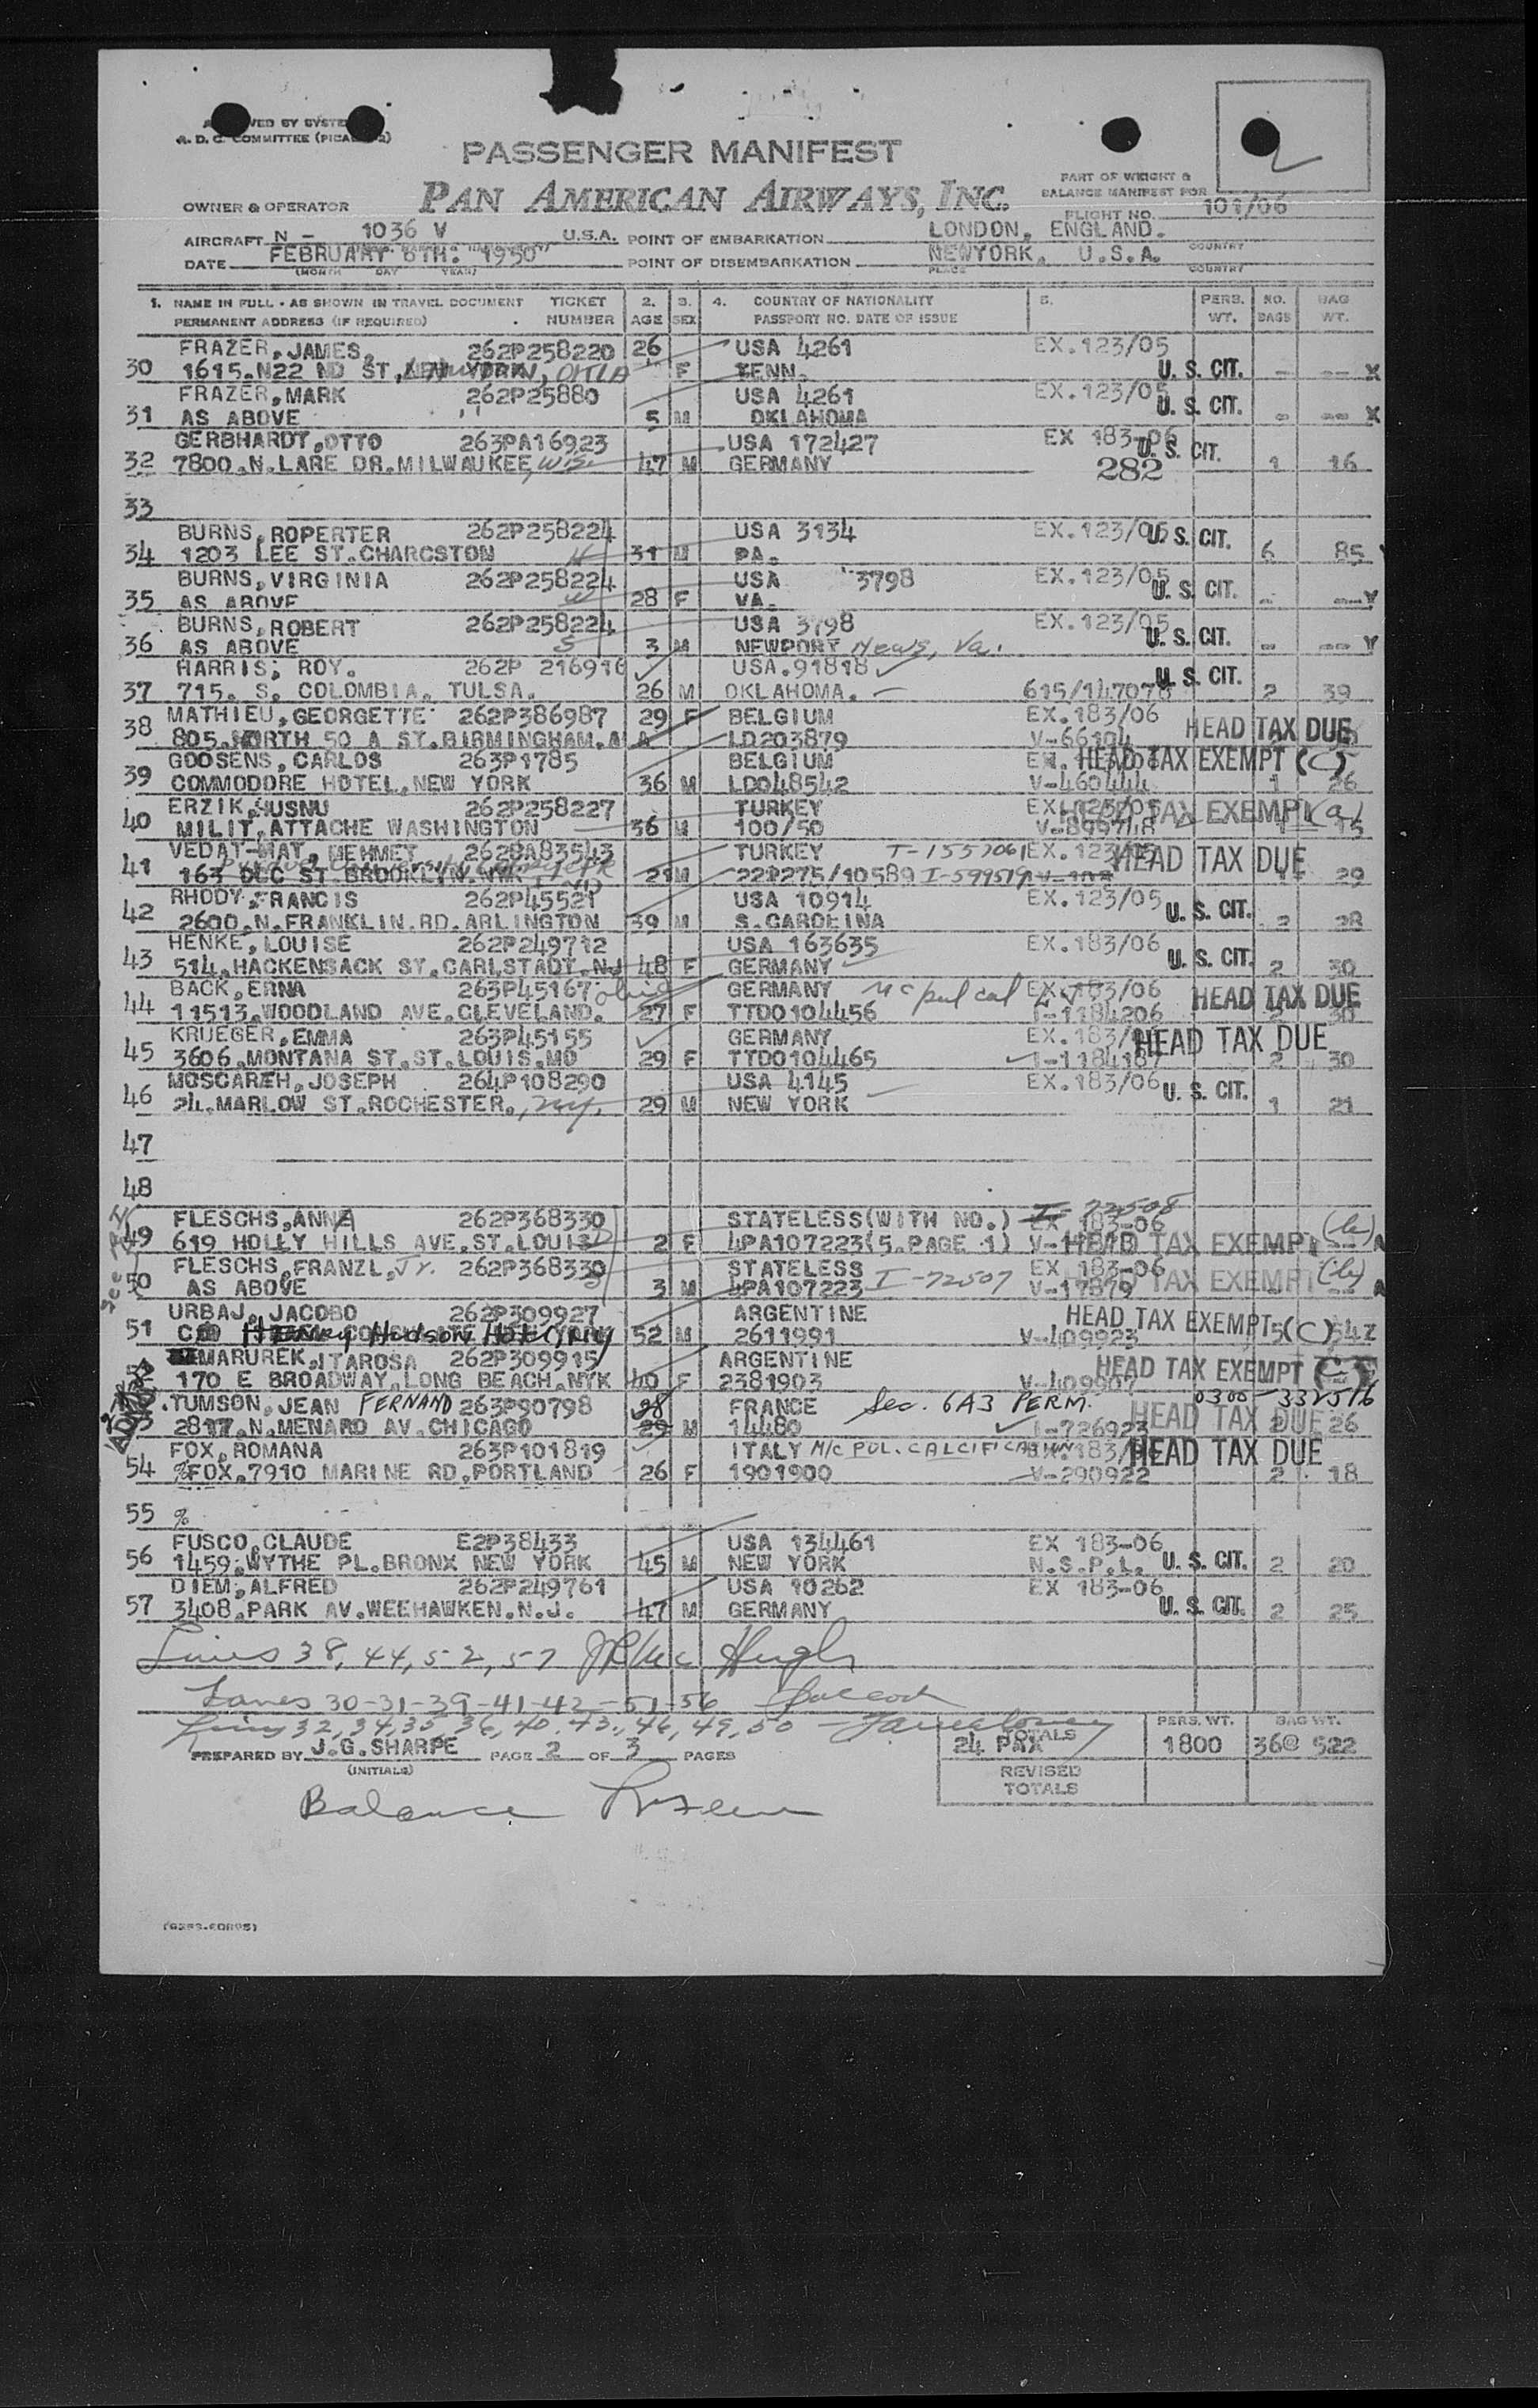 A. D. C. COMMITTEE
PASSENGER MANIFEST
PAN AMERICAN AIRWAYS, INC.
PART OF WEIGHT &
BALANCE MANIFEST FOR
FLIGHT NO. 101/06
OWNER & OPERATOR
AIRCRAFT N - 1036 V U.S.A. POINT OF EMBARKATION LONDON, ENGLAND. COUNTRY
DATE FEBRUARY 6TH: 1950 POINT OF DISEMBARKATION NEWYORK. U.S.A.
(MONTH DAY YEAR) PLACE COUNTRY
1. NAME IN FULL - AS SHOWN IN TRAVEL DOCUMENT TICKET 2. 3. 4. COUNTRY OF NATIONALITY 5. PERS. NO. BAG
PERMANENT ADDRESS (IF REQUIRED) NUMBER AGE SEX PASSPORT NO. DATE OF ISSUE WT. BAGS WT.
FRAZER, JAMES, 262P258220 26 USA 4261 EX.123/05
30 1615.N22 ND ST, OKLA F TENN. U. S. CIT. - -- X
FRAZER, MARK 262P25880 USA 4261 EX.123/05
31 AS ABOVE 5 M OKLAHOMA U. S. CIT. - -- X
GERBHARDT, OTTO 263PA16923 USA 172427 EX 183-06
32 7800.N.LARE DR.MILWAUKEE, Wis. 47 M GERMANY 282 U. S. CIT. 1 16
33
BURNS, ROPERTER 262P258224 USA 3134 EX.123/05
34 1203 LEE ST.CHARCSTON 31 M PA. U. S. CIT. 6 85
BURNS, VIRGINIA 262P258224 USA 3798 EX.123/05
35 AS ABOVE 28 F VA. U. S. CIT. - -- Y
BURNS, ROBERT 262P258224 USA 3798 EX.123/05
36 AS ABOVE 3 M NEWPORT News, Va. U. S. CIT. - -- Y
HARRIS; ROY. 262P 216916 USA.91818 U. S. CIT.
37 715. S. COLOMBIA. TULSA. 26 M OKLAHOMA. 615/147078 2 39
MATHIEU, GEORGETTE 262P386987 29 F BELGIUM EX.183/06
38 805.NORTH 50 A ST.BIRMINGHAM.A A LD203879 V-66104 HEAD TAX DUE
GOOSENS, CARLOS 263P1785 BELGIUM HEAD TAX EXEMPT (C)
39 COMMODORE HOTEL.NEW YORK 36 M LD048542 V-460444 1 26
ERZIK, HUSNU 262P258227 TURKEY EX.123/05 TAX EXEMPT (a)
40 MILIT.ATTACHE WASHINGTON 36 M 100/50 V-899748 15
VEDAT-MAT, MEHMET 262PA83543 TURKEY T-1557061 EX.123/05 HEAD TAX DUE
41 163 DLC ST BROOKLYN. 21 M 221275/10589 I-599519 29
RHODY, FRANCIS 262P45521 USA 10914 EX.123/05
42 2600.N.FRANKLIN.RD.ARLINGTON 39 M S.CAROLINA U. S. CIT. 2 28
HENKE, LOUISE 262P249712 USA 163635 EX.183/06
43 514.HACKENSACK ST.CARLSTADT.NJ 48 F GERMANY U. S. CIT. 2 30
BACK, ERNA 263P45167 GERMANY EX.183/06 HEAD TAX DUE
44 11513.WOODLAND AVE.CLEVELAND. ohio 27 F TTDO104456 I-1184206 2 30
KRUEGER, EMMA 263P45155 GERMANY EX.183/06 HEAD TAX DUE
45 3606.MONTANA ST.ST.LOUIS.MO 29 F TTDO104465 I-1184187 2 30
MOSCAREH, JOSEPH 264P108290 USA 4145 EX.183/06
46 24.MARLOW ST.ROCHESTER., N.Y. 29 M NEW YORK U. S. CIT. 1 21
47
48
FLESCHS, ANNE 262P368330 STATELESS(WITH NO.) I-72508 EX 183-06
49 619 HOLLY HILLS AVE.ST.LOUIS 2 F 4PA107223(5.PAGE 1) HEAD TAX EXEMPT (b)
FLESCHS, FRANZL, Jr. 262P368330 STATELESS EX 183-06
50 AS ABOVE 3 M 4PA107223 I-72507 V-17879 TAX EXEMPT (b)
URBAJ, JACOBO 262P309927 ARGENTINE HEAD TAX EXEMPT (C)
51 C/O Henry Hudson Hotel NY 52 M 2611991 V-409923 5 54 Z
MARUREK, ITAROSA 262P309915 ARGENTINE HEAD TAX EXEMPT
170 E BROADWAY.LONG BEACH.NYK 40 F 2381903 V-409907
TUMSON, JEAN FERNAND 263P90798 28 FRANCE Sec. 6A3 PERM. 0300-332516
2817.N.MENARD AV.CHICAGO 29 M 14480 I-726923 HEAD TAX DUE 26
FOX, ROMANA 263P101819 ITALY M/C PUL. CALCIFICATION EX.183/06 HEAD TAX DUE
54 %FOX.7910 MARINE RD.PORTLAND 26 F 1901900 V-290922 2 18
55 %
FUSCO, CLAUDE E2P38433 USA 134461 EX 183-06
56 1459.WYTHE PL.BRONX NEW YORK 45 M NEW YORK N.S.P.L. U. S. CIT. 2 20
DIEM, ALFRED 262P249761 USA 10262 EX 183-06
57 3408.PARK AV.WEEHAWKEN.N.J. 47 M GERMANY U. S. CIT. 2 25
Lines 38, 44, 52, 57 Mc Hugh
Lines 30-31-39-41-42-51-56
Lines 32, 34, 35, 36, 40, 43, 46, 49, 50
PREPARED BY J.G.SHARPE PAGE 2 OF 3 PAGES
(INITIALS)
TOTALS PERS. WT. BAG WT.
24 PAX 1800 36@ 522
REVISED
TOTALS
Balance